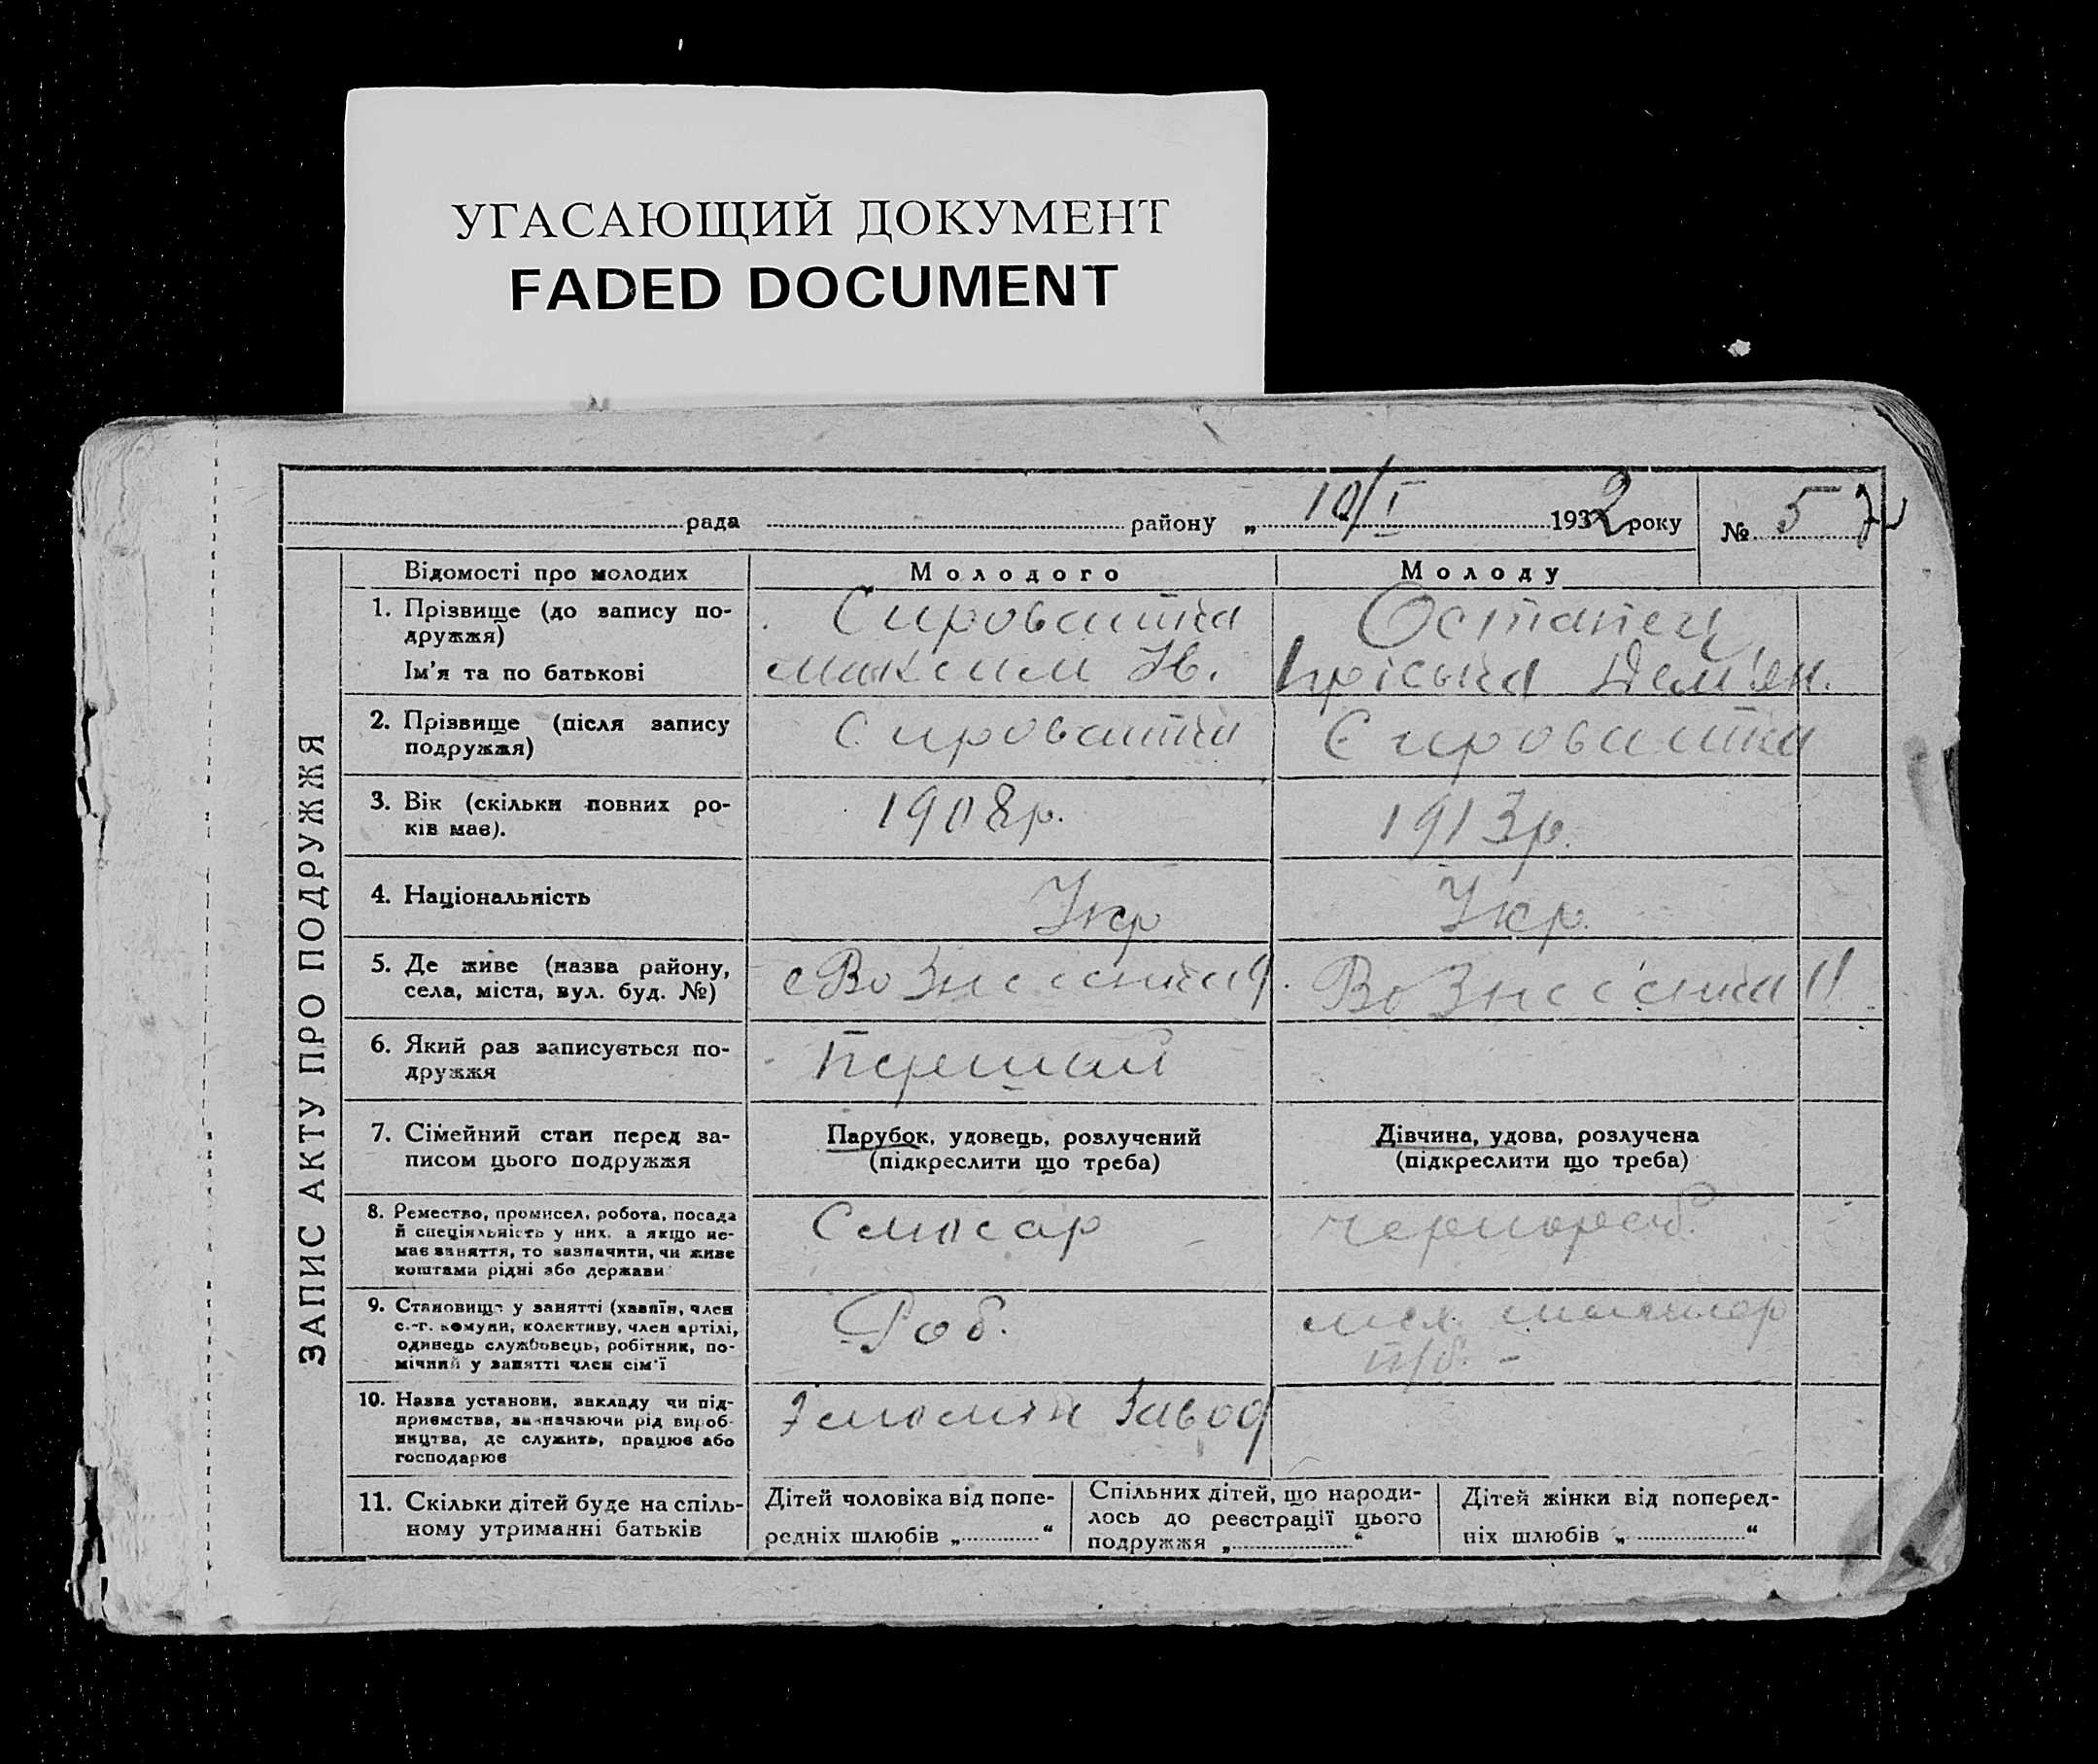 УГАСАЮЩИЙ ДОКУМЕНТ
FADED DOCUMENT
рада району „ 10/I 1932 року № 5
ЗАПИС АКТУ ПРО ПОДРУЖЖЯ
Відомості про молодих Молодого Молоду
1. Прізвище (до запису по-
дружжя)
Сироватка Остапец
Ім'я та по батькові Максим Н. Пріська Дем'ян.
2. Прізвище (після запису
подружжя)
Сироватка Сироватка
3. Вік (скільки повних ро-
ків має).
1908р. 1913р.
4. Національність Укр Укр.
5. Де живе (назва району,
села, міста, вул. буд. №)
с Вознесенка Вознесенка
6. Який раз записується по-
дружжя
Перший
7. Сімейний стан перед за-
писом цього подружжя
Парубок, удовець, розлучений
(підкреслити що треба)
Дівчина, удова, розлучена
(підкреслити що треба)
8. Ремество, промисел, робота, посада
й спеціяльність у них, а якщо не-
має заняття, то зазначити, чи живе
коштами рідні або держави
Слюсар чернороб.
9. Становище у занятті (хазяїн, член
с.-г. комуни, колективу, член артілі,
одинець службовець, робітник, по-
мічний у занятті член сім'ї
Роб.
10. Назва установи, закладу чи під-
приємства, зазначаючи рід вироб-
ництва, де служить, працює або
господарює
завод
11. Скільки дітей буде на спіль-
ному утриманні батьків
Дітей чоловіка від попе-
редніх шлюбів „ “
Спільних дітей, що народи-
лось до реєстрації цього
подружжя „ “
Дітей жінки від поперед-
ніх шлюбів „ “